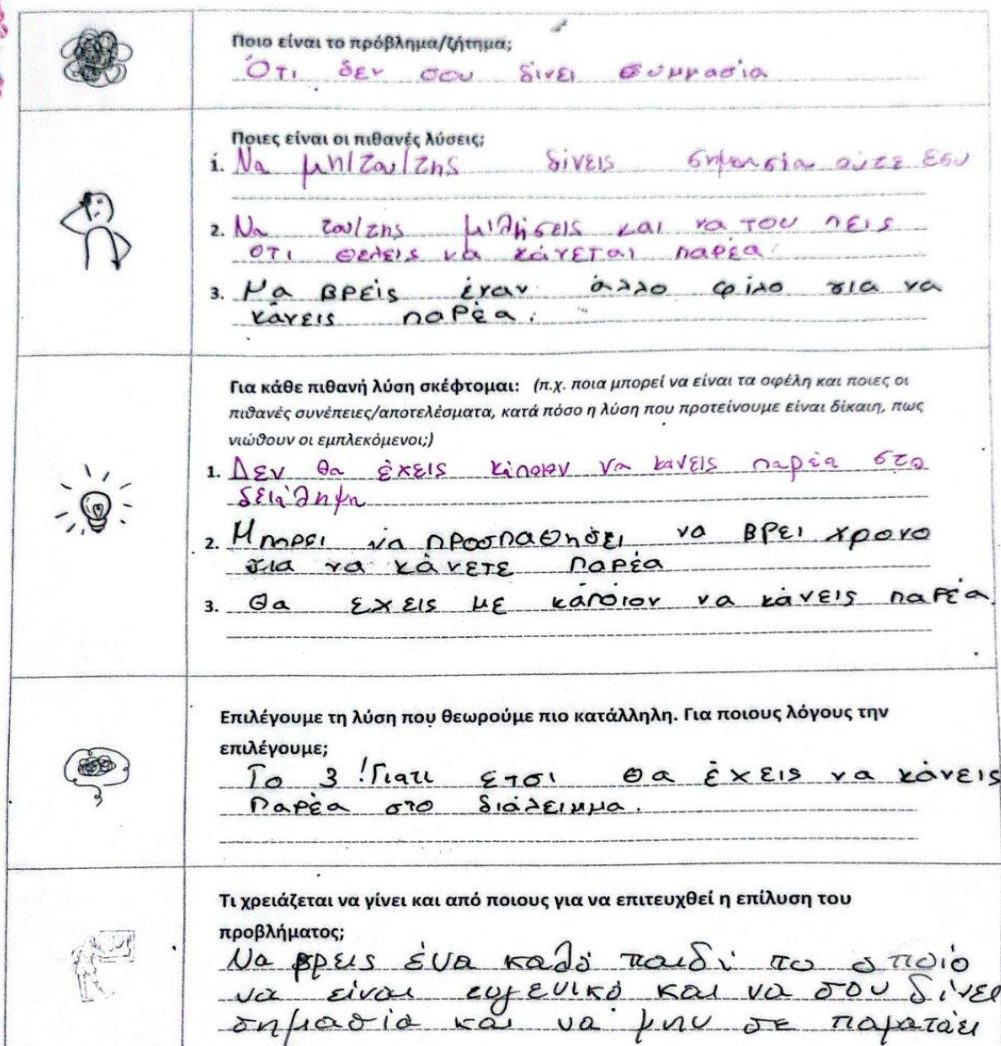 Ποιο είναι το πρόβλημα/ζήτημα;
Ότι δεν σου δίνει σημμασία
Ποιες είναι οι πιθανές λύσεις;
1. Να μη/του/της δίνεις σημασία ούτε εσύ
2. Να του/της μιλήσεις και να του πεις
ότι θέλεις να κάνεται παρέα.
3. Να βρεις έναν άλλο φίλο για να
κάνεις παρέα.
Για κάθε πιθανή λύση σκέφτομαι: (π.χ. ποια μπορεί να είναι τα οφέλη και ποιες οι
πιθανές συνέπειες/αποτελέσματα, κατά πόσο η λύση που προτείνουμε είναι δίκαιη, πως
νιώθουν οι εμπλεκόμενοι;)
1. Δεν θα έχεις κάποιον να κάνεις παρέα στο
2. Μπορει να προσπαθήσει να βρει χρονο
για να κάνετε παρέα
3. Θα εχεις με κάποιον να κάνεις παρέα.
Επιλέγουμε τη λύση που θεωρούμε πιο κατάλληλη. Για ποιους λόγους την
επιλέγουμε;
Το 3! Γιατι ετσι θα έχεις να κάνεις
παρέα στο διάλειμμα.
Τι χρειάζεται να γίνει και από ποιους για να επιτευχθεί η επίλυση του
προβλήματος;
Να βρεις ένα καλό παιδί το οποίο
να είναι ευγενικό και να σου δίνει
σημασία και να μην σε παρατάει